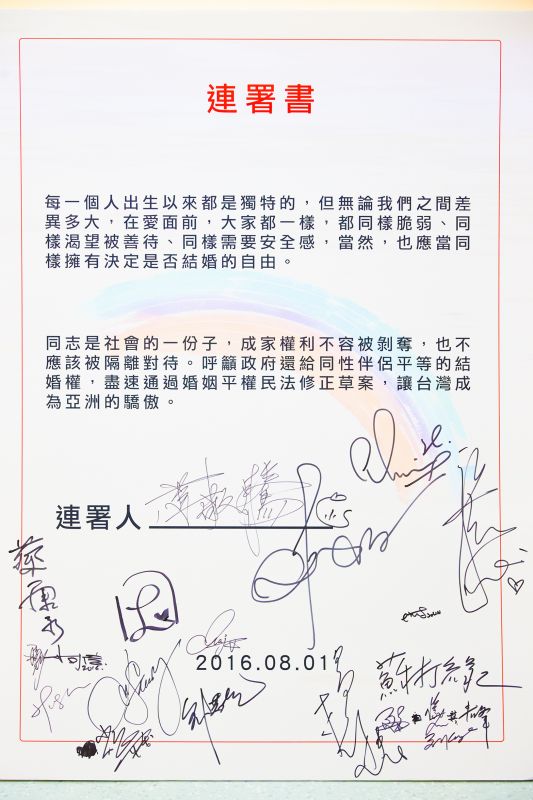 連署書
每一個人出生以來都是獨特的，但無論我們之間差
異多大，在愛面前，大家都一樣，都同樣脆弱、同
樣渴望被善待、同樣需要安全感，當然，也應當同
樣擁有決定是否結婚的自由。
同志是社會的一份子，成家權利不容被剝奪，也不
應該被隔離對待。呼籲政府還給同性伴侶平等的結
婚權，盡速通過婚姻平權民法修正草案，讓台灣成
為亞洲的驕傲。
連署人
蔡康永
2016.08.01
蘇打綠